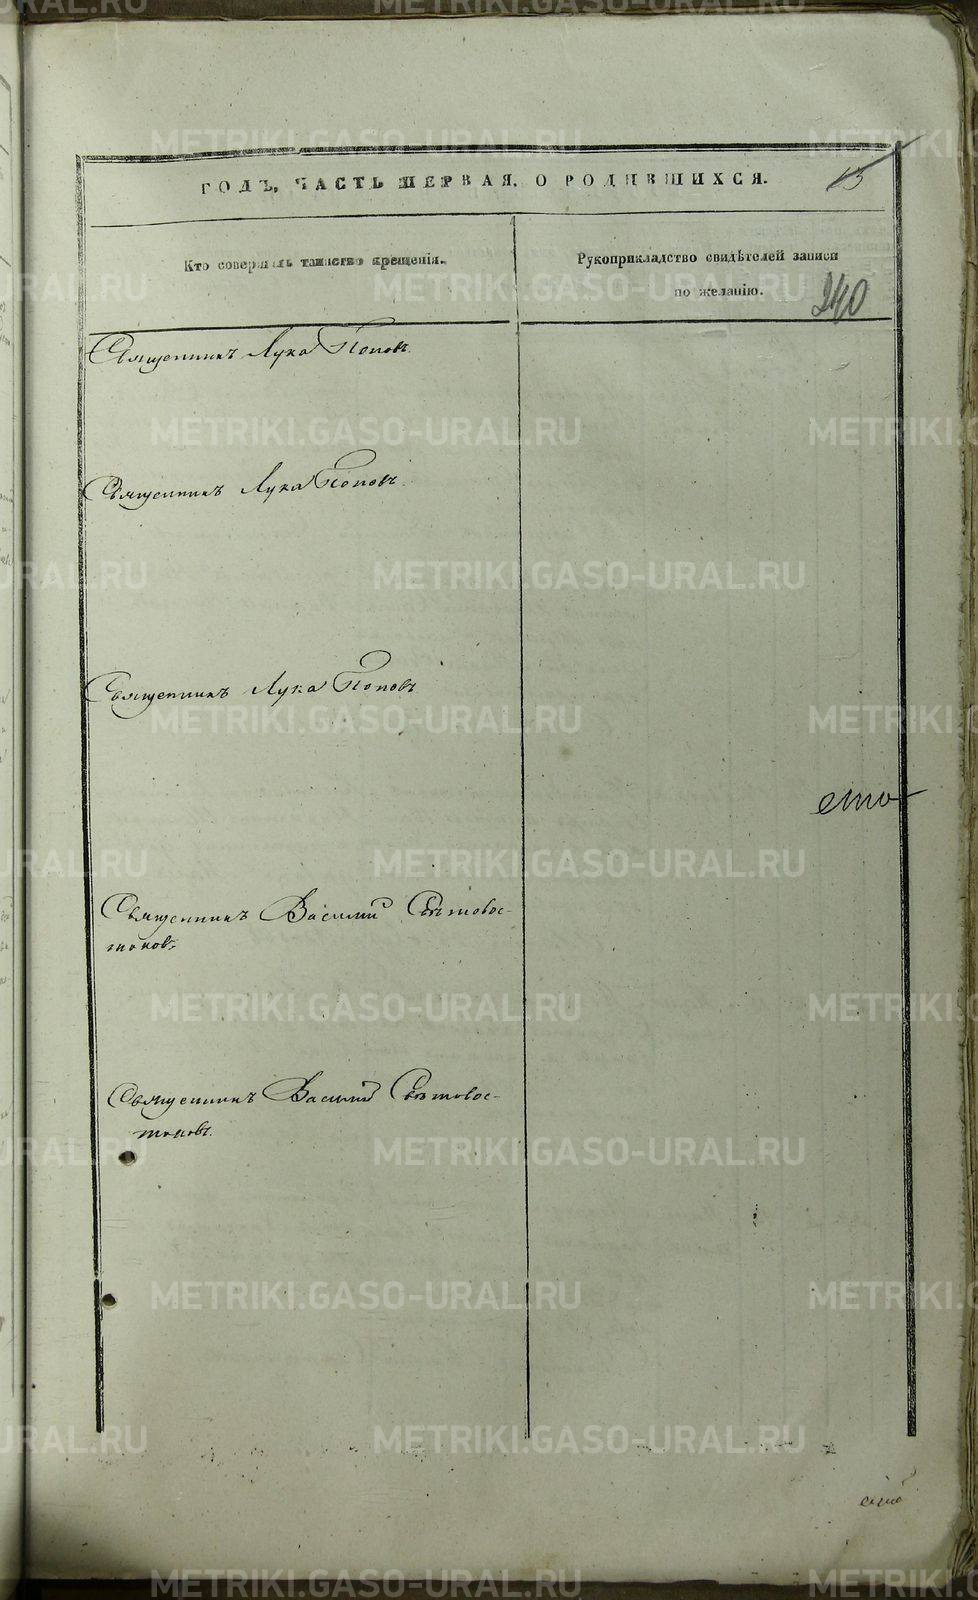 ГОДЪ, ЧАСТЬ ПЕРВАЯ, О РОДИВШИХСЯ.
13
Кто совершалъ таинство крещенія.
Рукоприкладство свидѣтелей записи
по желанію.
240
Священникъ Лука Поповъ.
Священникъ Лука Поповъ.
Священникъ Лука Поповъ
сто
Священникъ Василий Свѣтовос-
токовъ.
Священникъ Василий Свѣтовос-
токовъ.
METRIKI.GASO-URAL.RU